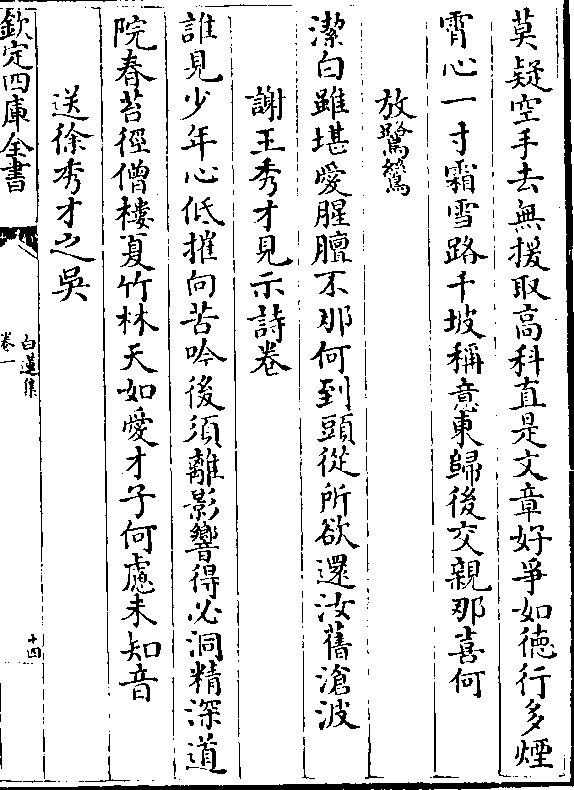 莫疑空手去無援取高科直是文章好爭如徳行多煙
霄心一寸霜雪路千坡稱意東歸後交親那喜何
放鷺鷥
潔白雖堪愛腥膻不那何到頭從所欲還汝舊滄波
謝王秀才見示詩卷
誰見少年心低摧向苦吟後須離影響得必洞精深道
院春苔徑僧樓夏竹林天如愛才子何慮未知音
送徐秀才之吳
欽定四庫全書
白蓮集
卷一
十四